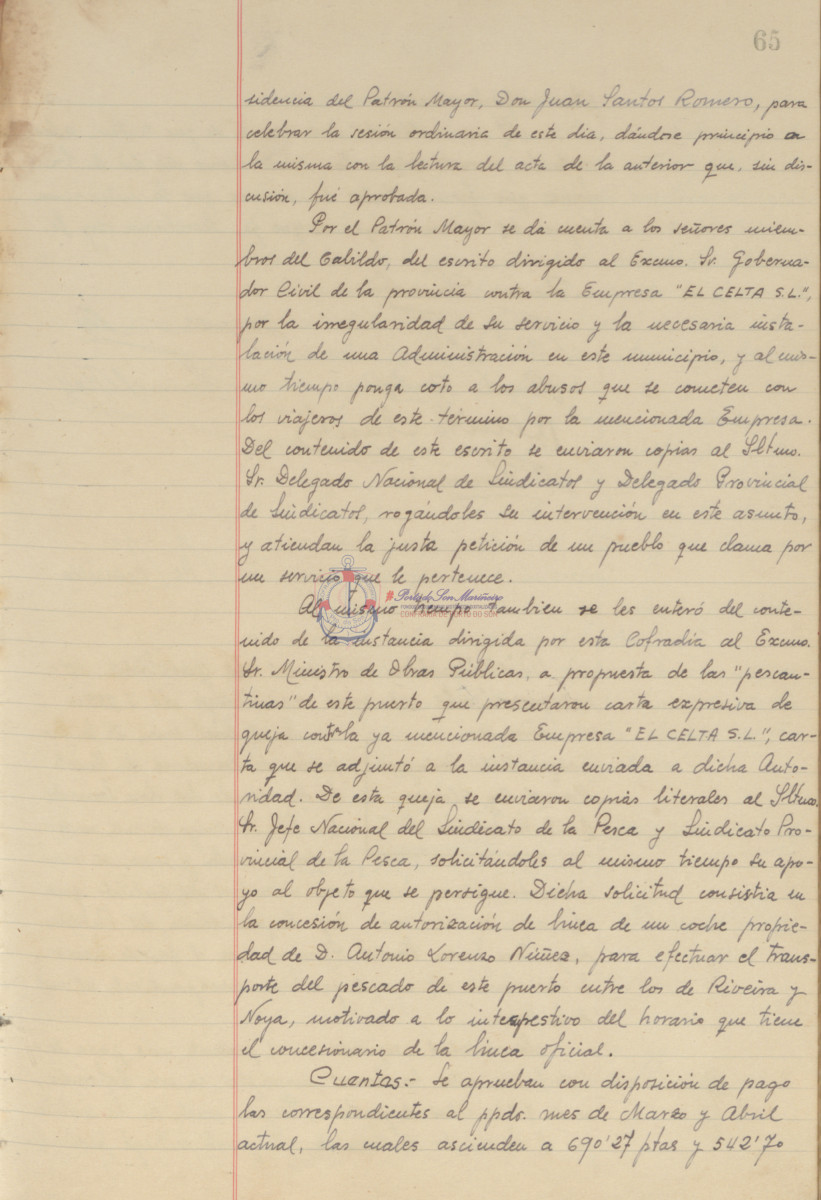 65
sidencia del Patrón Mayor, Don Juan Santos Romero, para
celebrar la sesión ordinaria de este dia, dándose principio a
la misma con la lectura del acta de la anterior que, sin dis-
cusión, fué aprobada.
Por el Patrón Mayor se dá cuenta a los señores miem-
bros del Cabildo, del escrito dirigido al Excmo. Sr. Goberna-
dor Civil de la provincia contra la Empresa "EL CELTA S.L.",
por la irregularidad de su servicio y la necesaria insta-
lación de una Administración en este municipio, y al mis-
mo tiempo ponga coto a los abusos que se cometen con
los viajeros de este término por la mencionada Empresa.
Del contenido de este escrito se enviaron copias al Iltmo.
Sr. Delegado Nacional de Sindicatos y Delegado Provincial
de Sindicatos, rogándoles su intervención en este asunto,
y atiendan la justa petición de un pueblo que clama por
un servicio que le pertenece.
Al mismo tiempo tambien se les enteró del conte-
nido de la instancia dirigida por esta Cofradía al Excmo.
Sr. Ministro de Obras Públicas, a propuesta de las "pescan-
tinas" de este puerto que presentaron carta expresiva de
queja contra la ya mencionada Empresa "EL CELTA S.L.", car-
ta que se adjuntó a la instancia enviada a dicha Auto-
ridad. De esta queja se enviaron copias literales al Iltmo.
Sr. Jefe Nacional del Sindicato de la Pesca y Sindicato Pro-
vincial de la Pesca, solicitándoles al mismo tiempo su apo-
yo al objeto que se persigue. Dicha solicitud consistia en
la concesión de autorización de linea de un coche propie-
dad de D. Antonio Lorenzo Núñez, para efectuar el trans-
porte del pescado de este puerto entre los de Riveira y
Noya, motivado a lo intespestivo del horario que tiene
el concesionario de la linea oficial.
Cuentas.- Se aprueban con disposición de pago
las correspondientes al ppdo. mes de Marzo y Abril
actual, las cuales ascienden a 690'27 ptas y 542'70